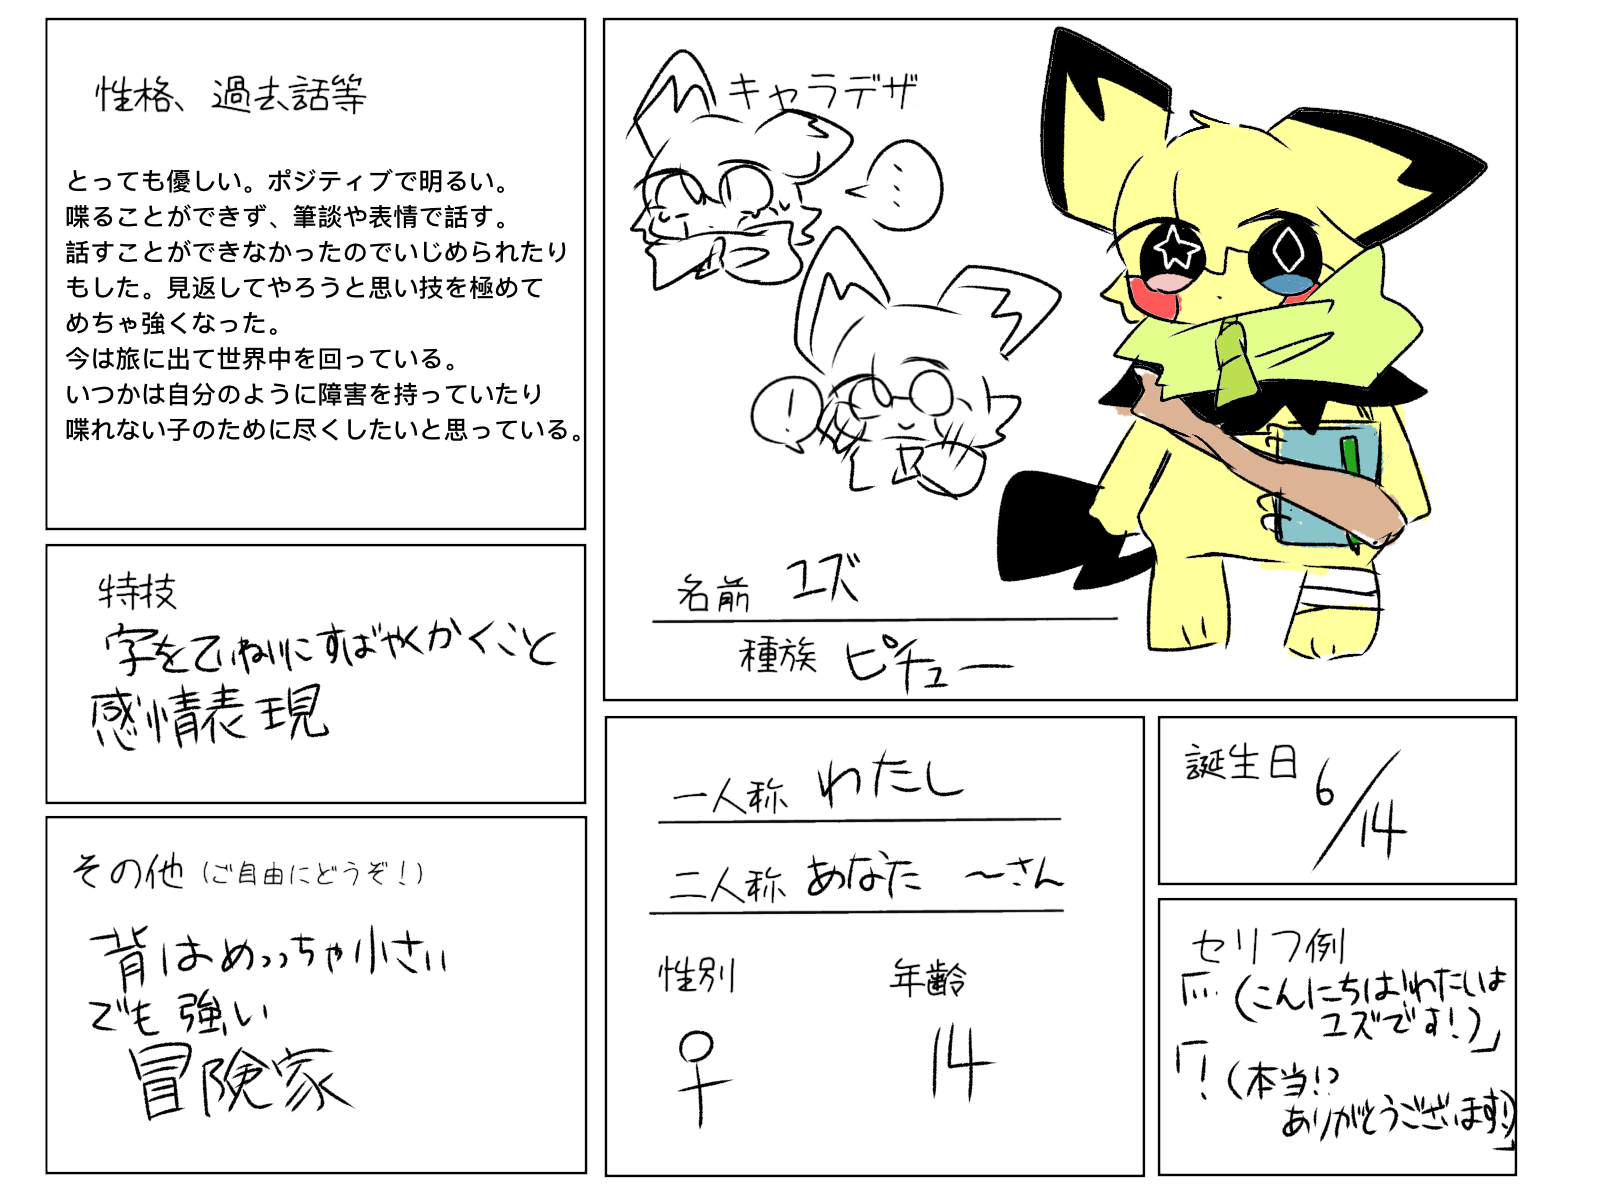 性格、過去話等
とっても優しい。ポジティブで明るい。
喋ることができず、筆談や表情で話す。
話すことができなかったのでいじめられたり
もした。見返してやろうと思い技を極めて
めちゃ強くなった。
今は旅に出て世界中を回っている。
いつかは自分のように障害を持っていたり
喋れない子のために尽くしたいと思っている。
特技
字をていねいにすばやくかくこと
感情表現
その他（ご自由にどうぞ！）
背はめっっちゃ小さい
でも強い
冒険家
キャラデザ
…
！
名前 ユズ
種族 ピチュー
一人称 わたし
二人称 あなた 〜さん
性別 年齢
♀ 14
誕生日 6/14
セリフ例
「…（こんにちは！わたしは
ユズです！）」
「！（本当！？
ありがとうございます！）」